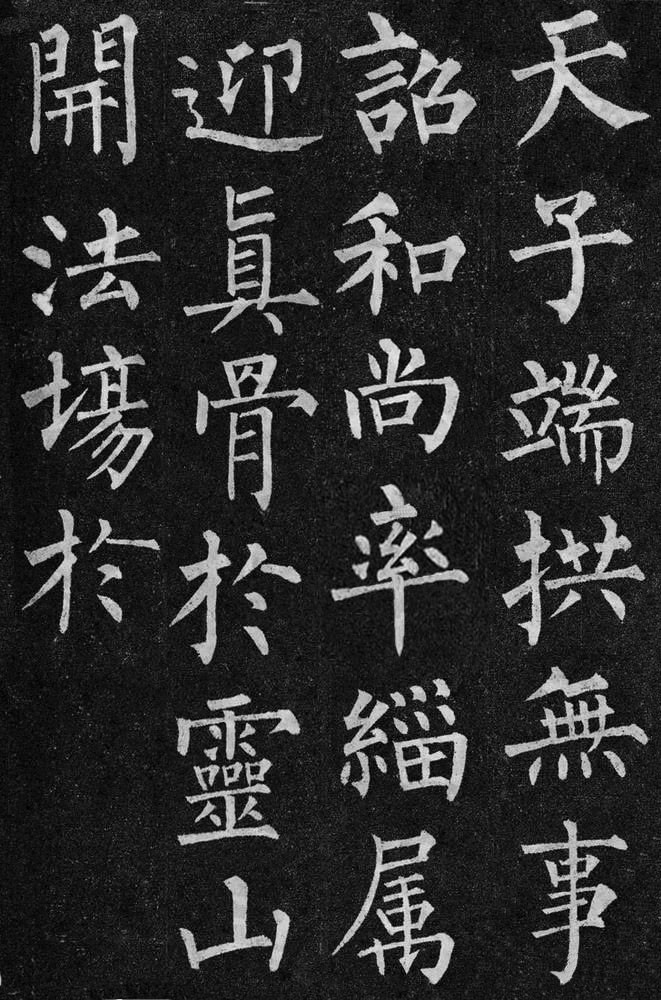 天子端拱無事
詔和尚率緇属
迎眞骨於靈山
開法場於